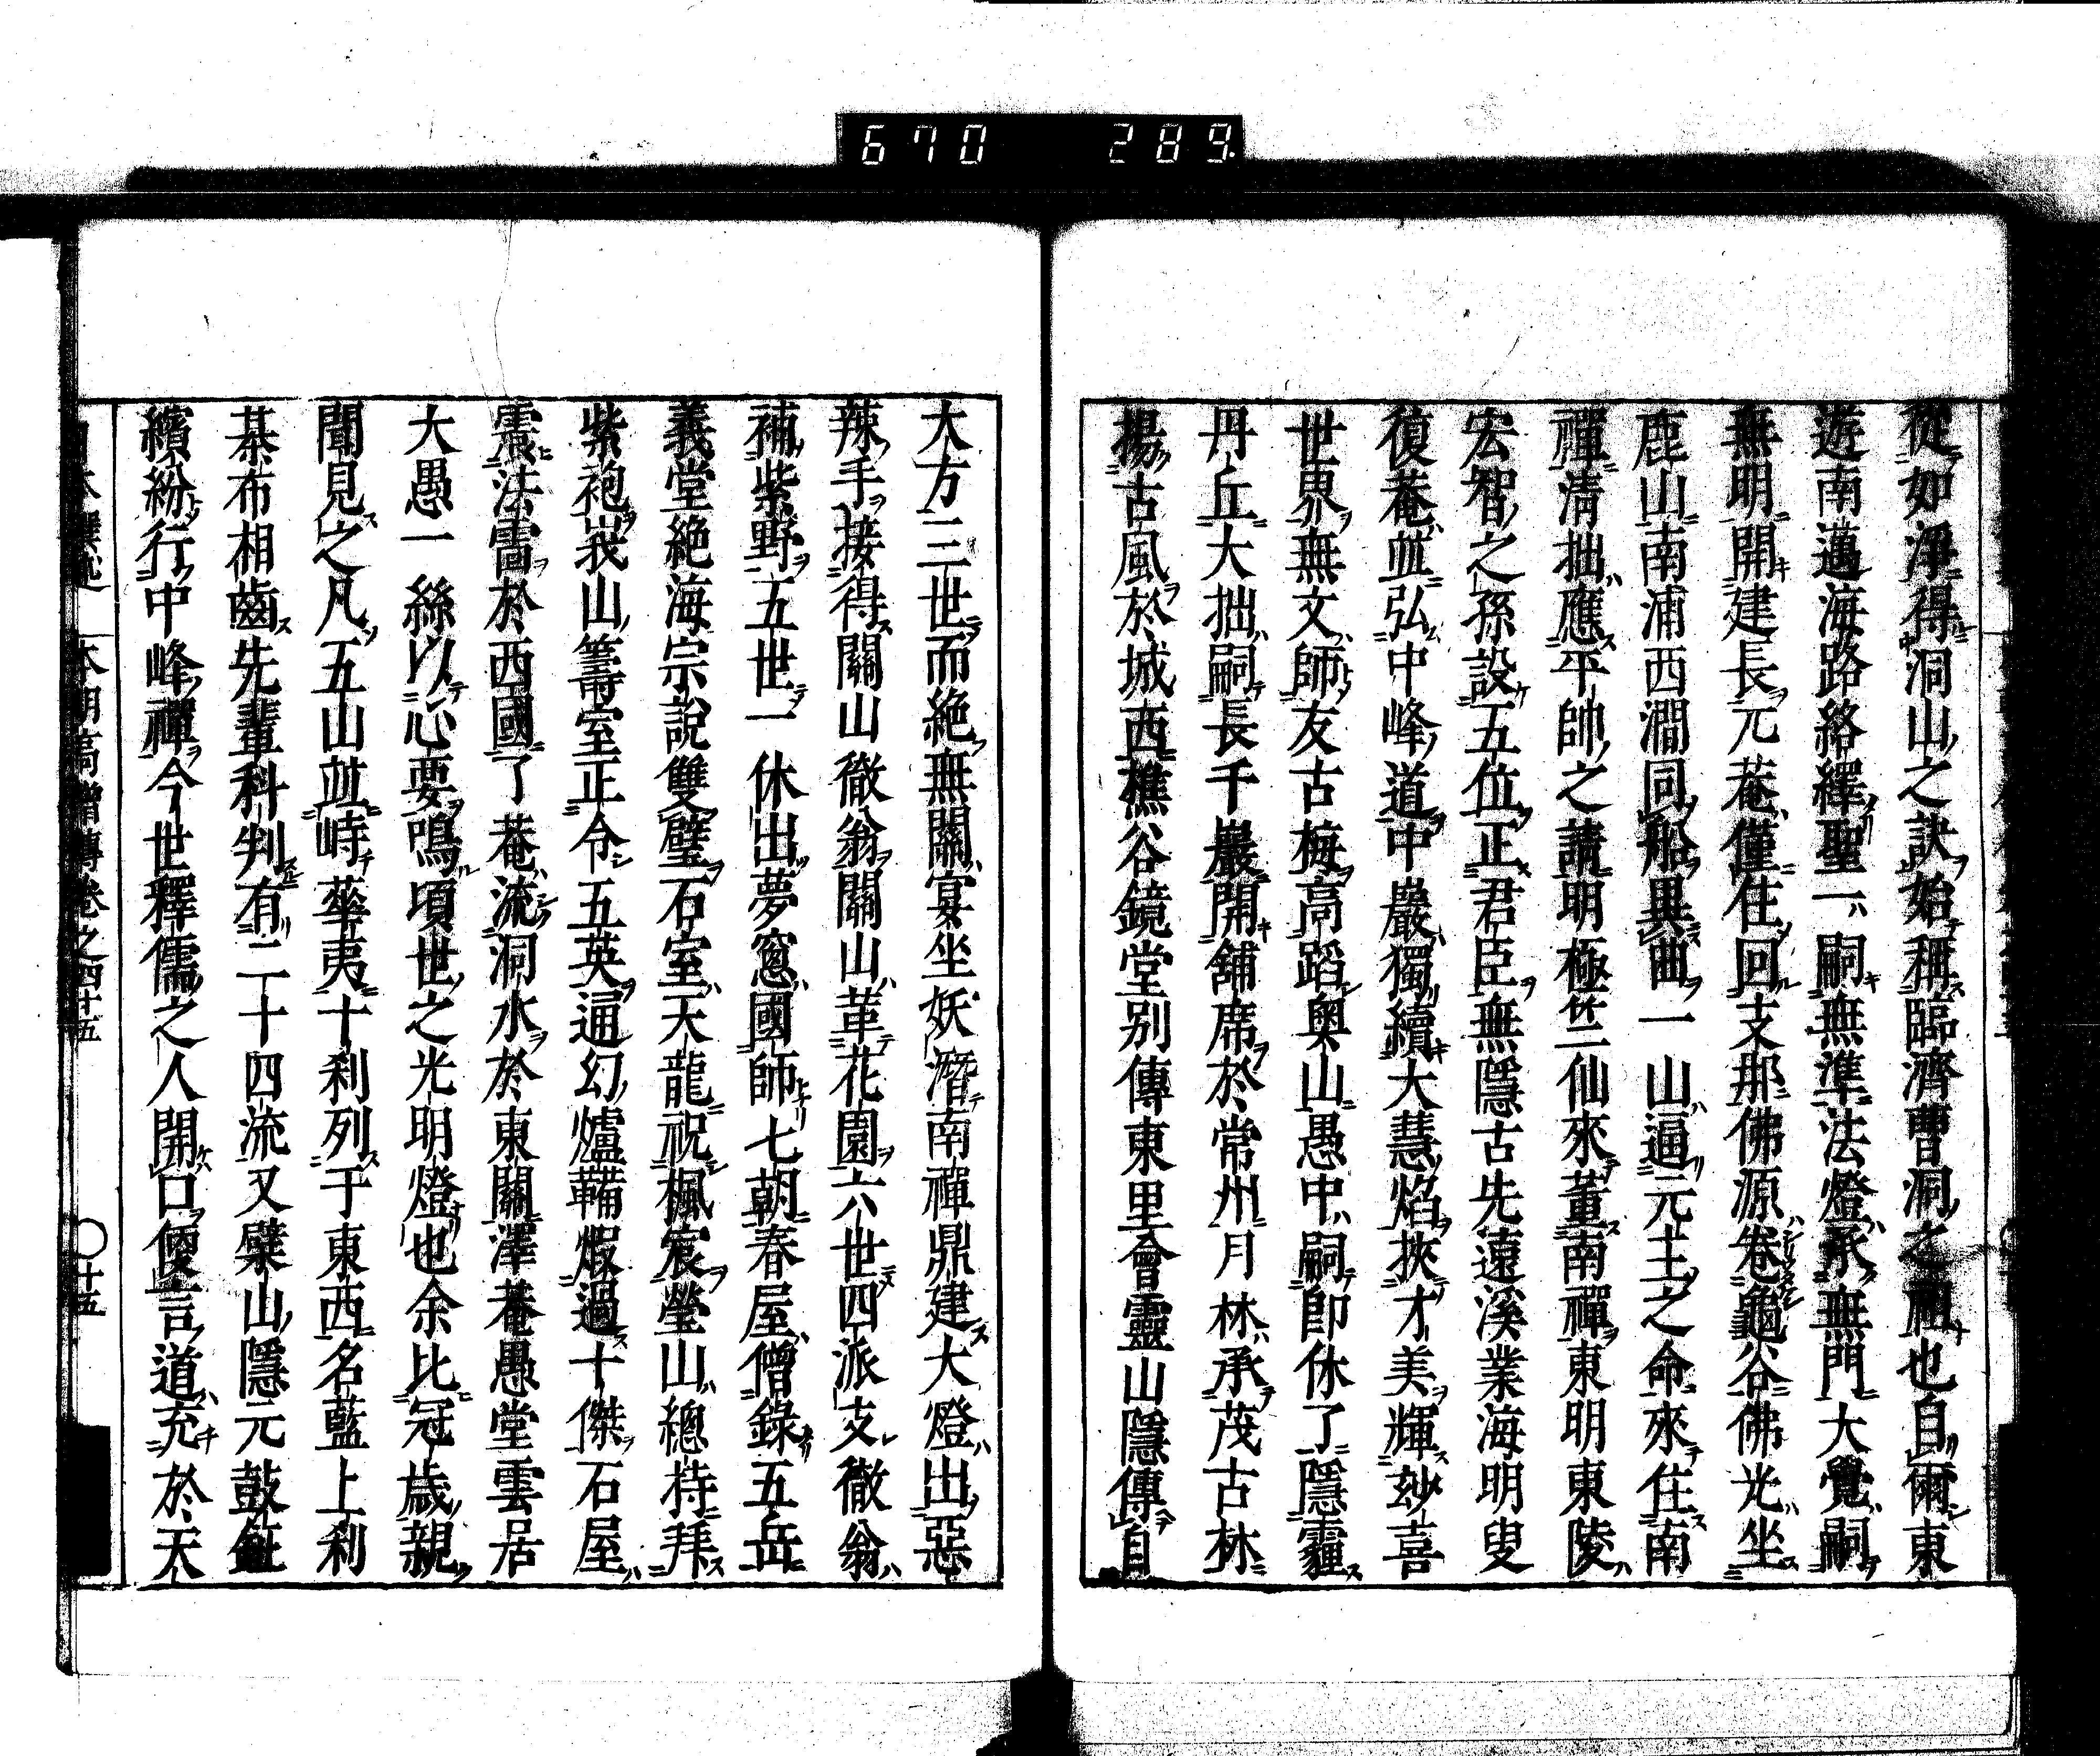 670 289
從如淨得洞山之訣始稱臨濟曹洞之祖也自爾東
遊南邁海路絡繹聖一嗣無準法燈承無門大覺嗣
無明開建長兀菴僅住回支那佛源卷龜谷佛光坐
鹿山南浦西澗同船異曲一山逼元主之命來住南
禪清拙應平帥之請明極竺仙來董南禪東明東陵
宏智之孫設五位正君臣無隱古先遠溪業海明叟
復菴並弘中峰道中巖獨續大慧焰挾才美輝玅喜
世界無文師友古梅高蹈奧山愚中嗣即休了隱霾
丹丘大拙嗣長千巖開舖席於常州月林承茂古林
揚古風於城西樵谷鏡堂別傳東里會靈山隱傳自
大方三世而絕無關宴坐妖潛南禪鼎建大燈出惡
辣手接得關山徹翁關山革花園六世四派支徹翁
補紫野五世一休出夢窓國師七朝春屋僧錄五岳
義堂絕海宗說雙璧石室天龍祝楓宸瑩山總持拜
紫袍峩山籌室正令五英通幻爐鞴煆過十傑石屋
震法雷於西國了菴流洞水於東關澤菴愚堂雲居
大愚一絲以心要鳴頃世之光明燈也余比冠歲親
聞見之凡五山並峙華夷十刹列于東西名藍上刹
棊布相齒先輩科判有二十四流又檗山隱元鼓鉦
繽紛行中峰禪今世釋儒之人開口傻言道充於天
本朝高僧傳卷之四十五 〇十五